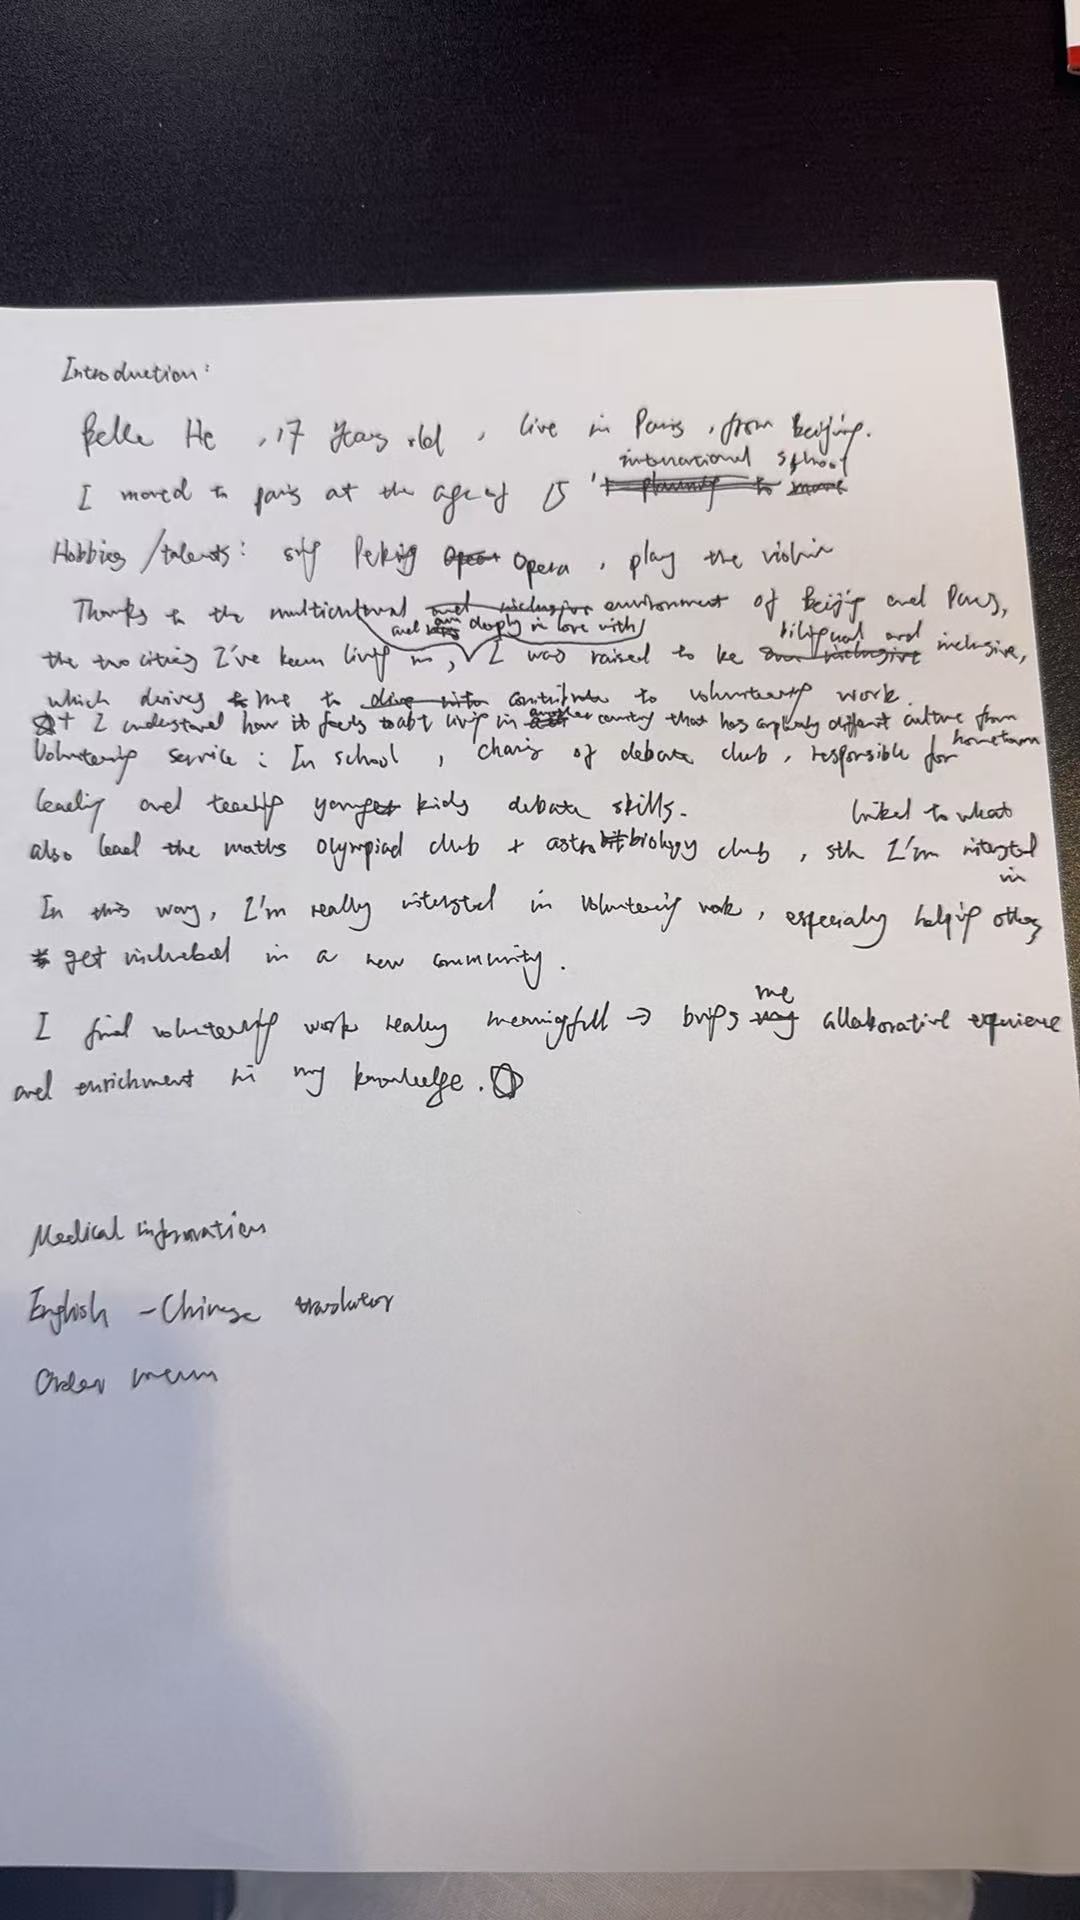 Introduction:
Belle He , 17 years old , live in Paris , from Beijing.
international school
I moved to paris at the age of 15 , + planning to move
Hobbies /talents: sing Peking Opera , play the violin
Thanks to the multicultural and inclusive environment of Beijing and Paris,
and am deeply in love with
bilingual and
the two cities I've been living in, I was raised to be inclusive,
which drives me to dive into contribute to volunteering work.
+ I understand how it feels to living in another country that has different culture from
hometown
Volunteering service : In school , chair of debate club , responsible for
leading and teaching younger kids debate skills.
linked to what
also lead the maths Olympiad club + astrobiology club , sth I'm interested
in
In this way, I'm really interested in volunteering work , especially helping others
get included in a new community.
me
I find volunteering work really meaningfull → brings my collaborative experience
and enrichment in my knowledge.
Medical information
English - Chinese translator
Order menu